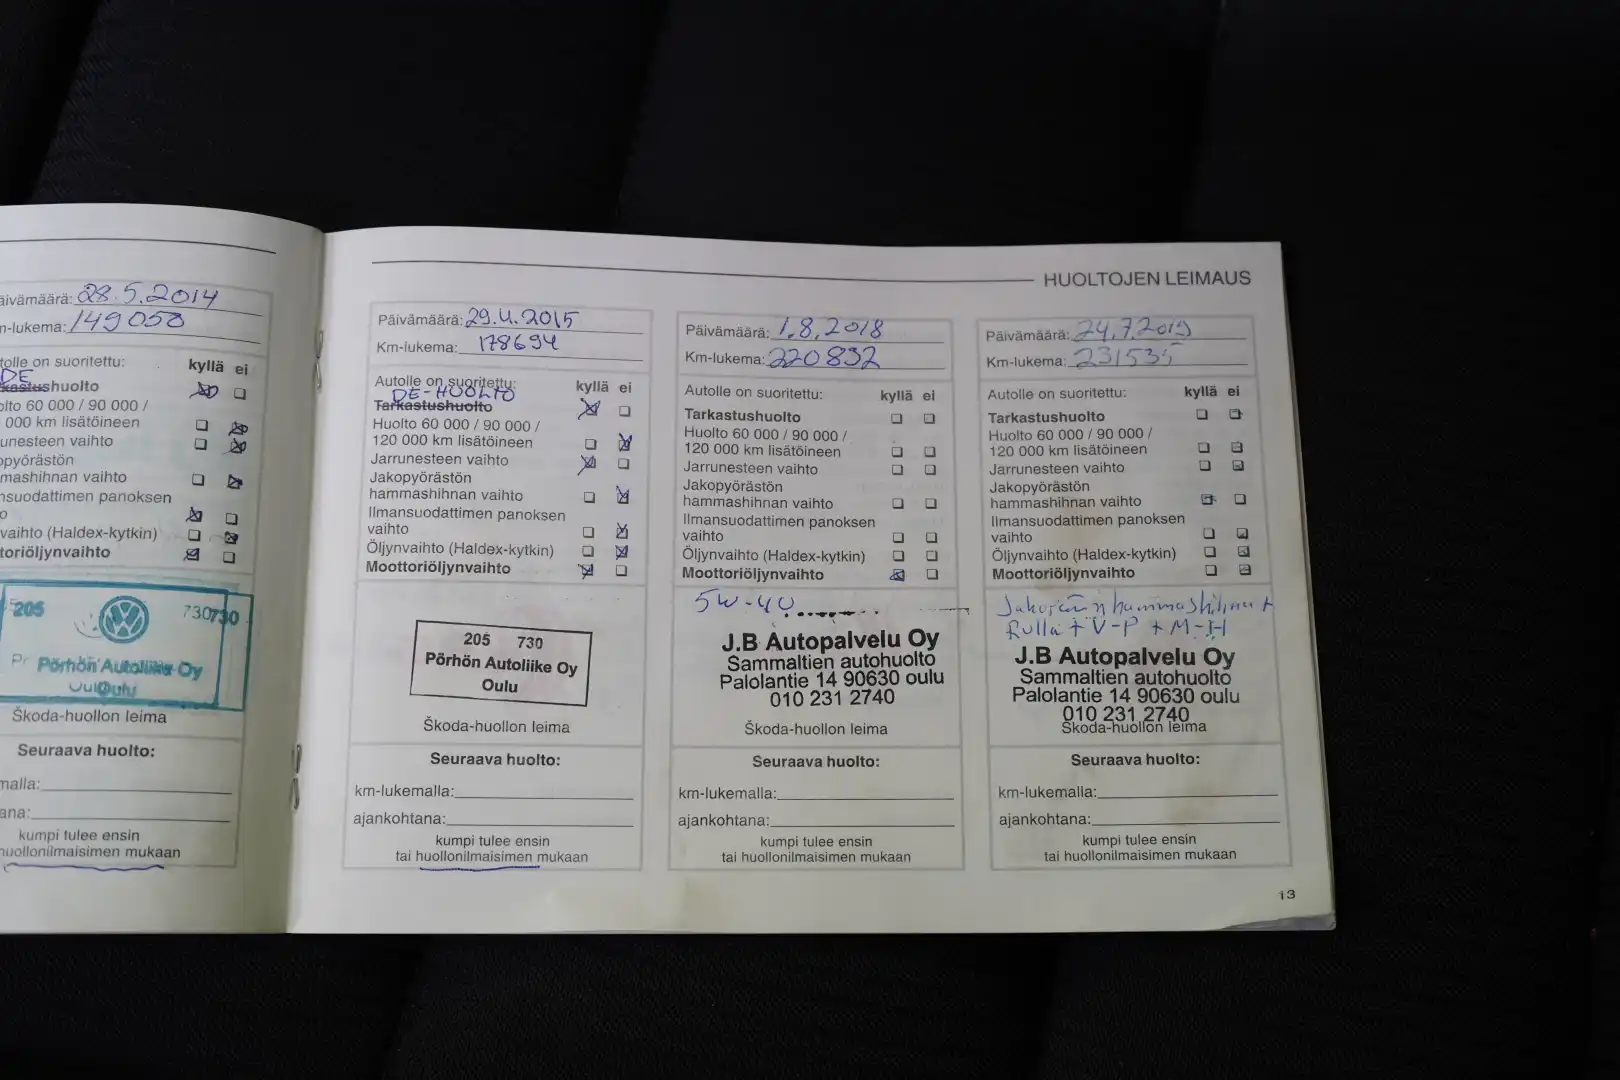 HUOLTOJEN LEIMAUS
äivämäärä: 28.5.2014
m-lukema: 149050
tolle on suoritettu: kyllä ei
DE
kastushuolto
olto 60 000 / 90 000 /
000 km lisätöineen
runesteen vaihto
opyörästön
mashihnan vaihto
nsuodattimen panoksen
o
vaihto (Haldex-kytkin)
toriöljynvaihto
205 730730
Pörhön Autoliike Oy
Oulu
Škoda-huollon leima
Seuraava huolto:
malla:
ana:
kumpi tulee ensin
huollonilmaisimen mukaan
Päivämäärä: 29.4.2015
Km-lukema: 178694
Autolle on suoritettu: kyllä ei
DE-HUOLTO
Tarkastushuolto
Huolto 60 000 / 90 000 /
120 000 km lisätöineen
Jarrunesteen vaihto
Jakopyörästön
hammashihnan vaihto
Ilmansuodattimen panoksen
vaihto
Öljynvaihto (Haldex-kytkin)
Moottoriöljynvaihto
205 730
Pörhön Autoliike Oy
Oulu
Škoda-huollon leima
Seuraava huolto:
km-lukemalla:
ajankohtana:
kumpi tulee ensin
tai huollonilmaisimen mukaan
Päivämäärä: 1.8.2018
Km-lukema: 220832
Autolle on suoritettu: kyllä ei
Tarkastushuolto
Huolto 60 000 / 90 000 /
120 000 km lisätöineen
Jarrunesteen vaihto
Jakopyörästön
hammashihnan vaihto
Ilmansuodattimen panoksen
vaihto
Öljynvaihto (Haldex-kytkin)
Moottoriöljynvaihto
5W-40
J.B Autopalvelu Oy
Sammaltien autohuolto
Palolantie 14 90630 oulu
010 231 2740
Škoda-huollon leima
Seuraava huolto:
km-lukemalla:
ajankohtana:
kumpi tulee ensin
tai huollonilmaisimen mukaan
Päivämäärä: 24.7.2019
Km-lukema: 231535
Autolle on suoritettu: kyllä ei
Tarkastushuolto
Huolto 60 000 / 90 000 /
120 000 km lisätöineen
Jarrunesteen vaihto
Jakopyörästön
hammashihnan vaihto
Ilmansuodattimen panoksen
vaihto
Öljynvaihto (Haldex-kytkin)
Moottoriöljynvaihto
hammashihna +
Rulla + V-P + M-H
J.B Autopalvelu Oy
Sammaltien autohuolto
Palolantie 14 90630 oulu
010 231 2740
Škoda-huollon leima
Seuraava huolto:
km-lukemalla:
ajankohtana:
kumpi tulee ensin
tai huollonilmaisimen mukaan
13